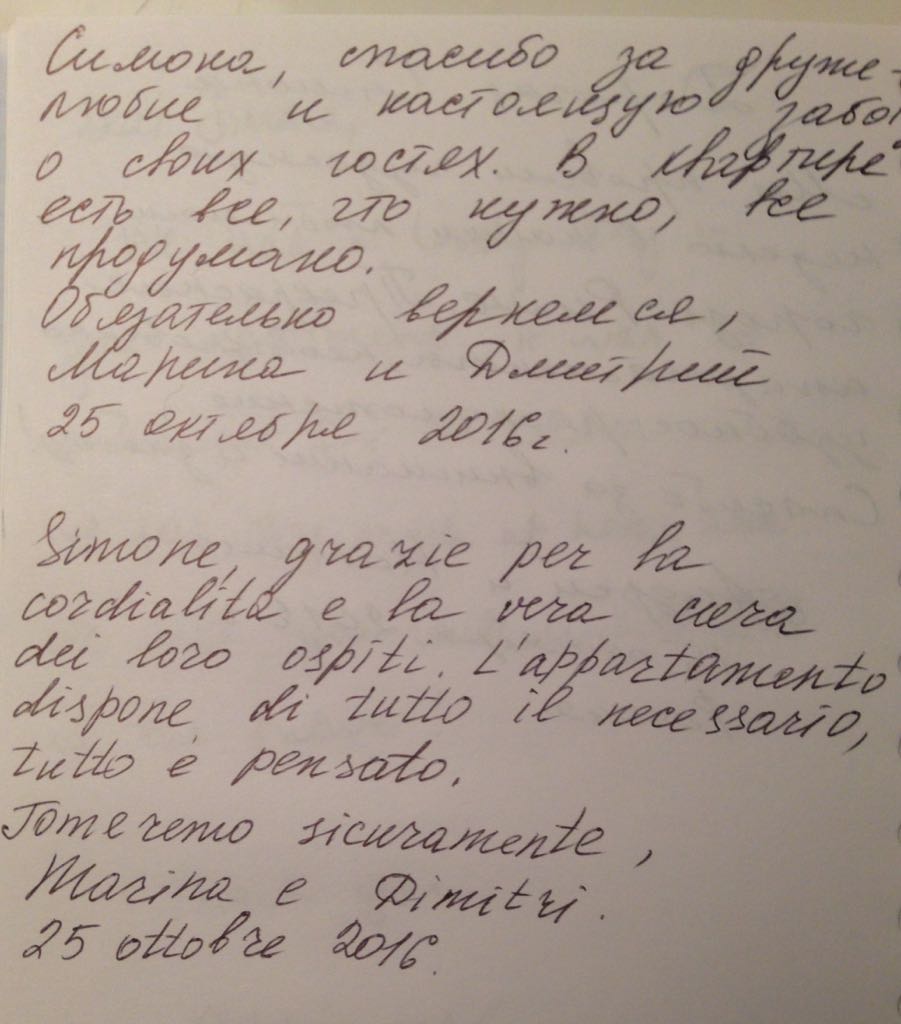 Симона, спасибо за друже-
любие и настоящую забот
о своих гостях. В квартире
есть все, что нужно, все
продумано.
Обязательно вернемся,
Марина и Дмитрий
25 октября 2016г.
Simone, grazie per la
cordialità e la vera cura
dei loro ospiti. L'appartamento
dispone di tutto il necessario,
tutto è pensato.
Torneremo sicuramente,
Marina e Dimitri.
25 ottobre 2016.